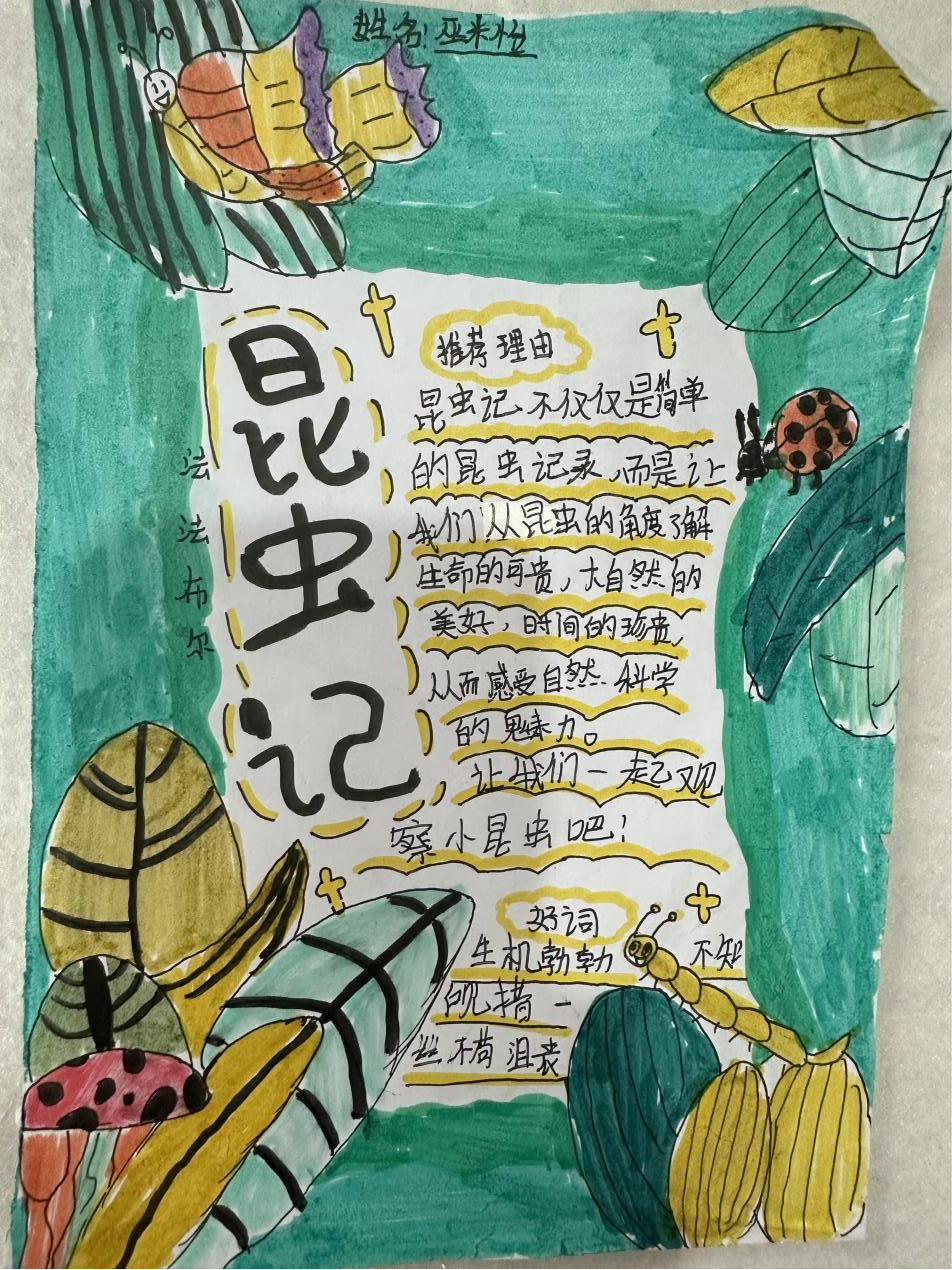 姓名：巫米
昆虫记
法 法布尔
推荐理由
昆虫记不仅仅是简单
的昆虫记录，而是让
我们从昆虫的角度了解
生命的可贵，大自然的
美好，时间的珍贵，
从而感受自然.科学
的魅力。
让我们一起观
察小昆虫吧！
好词
生机勃勃 不知
所措 一
丝不苟 沮丧